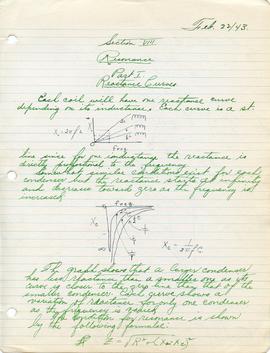 Feb. 22/43.
Section VIII
Resonance
Part I
Reactance Curves
Each coil will have one reactance curve
depending on its inductance. Each curve is a st.
XL = 2πfL
X
freq.
line since for an inductance the reactance is
directly proportional to the frequency.
Somewhat similar conditions exist for each
condenser but the reactance starts at infinity
and decreases toward zero as the frequency is
increased.
freq.
Xc
∞
Xc = 1/2πfC
The graph shows that a larger condenser
has less reactance than a smaller one as its
curve is closer to the zero line than that of the
smaller condenser. Each curve shows a
variation of reactance for only one condenser
as the frequency is varied.
condition for resonance is shown
by the following formula:
Z = √R²+(XL-Xc)²